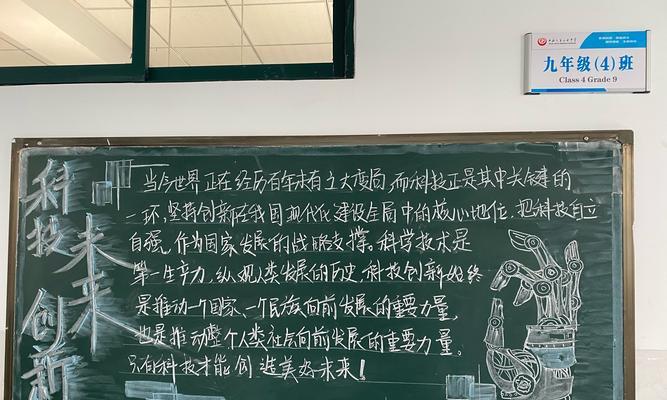 九年级(4)班
Class 4 Grade 9
科技创新
未来
当今世界正在经历百年未有之大变局,而科技正是其中关键的
一环,坚持创新在我国现代化建设全局中的核心地位,把科技自立
自强,作为国家发展的战略支撑。科学技术是
第一生产力,纵观人类发展的历史,科技创新始终
是推动一个国家、一个民族向前发展的重要力量,
也是推动整个人类社会向前发展的重要力量。
只有科技才能创造美好未来!